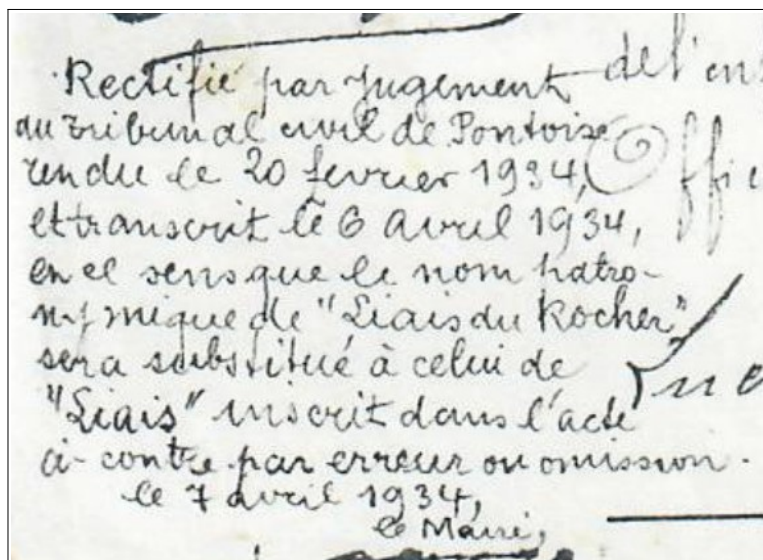 Rectifié par jugement
du tribunal civil de Pontoise
rendu le 20 fevrier 1934,
et transcrit le 6 avril 1934,
en ce sens que le nom patro-
nymique de "Liais du Rocher"
sera substitué à celui de
"Liais" inscrit dans l'acte
ci-contre par erreur ou omission.
le 7 avril 1934,
le Maire,
de l'en
Offi